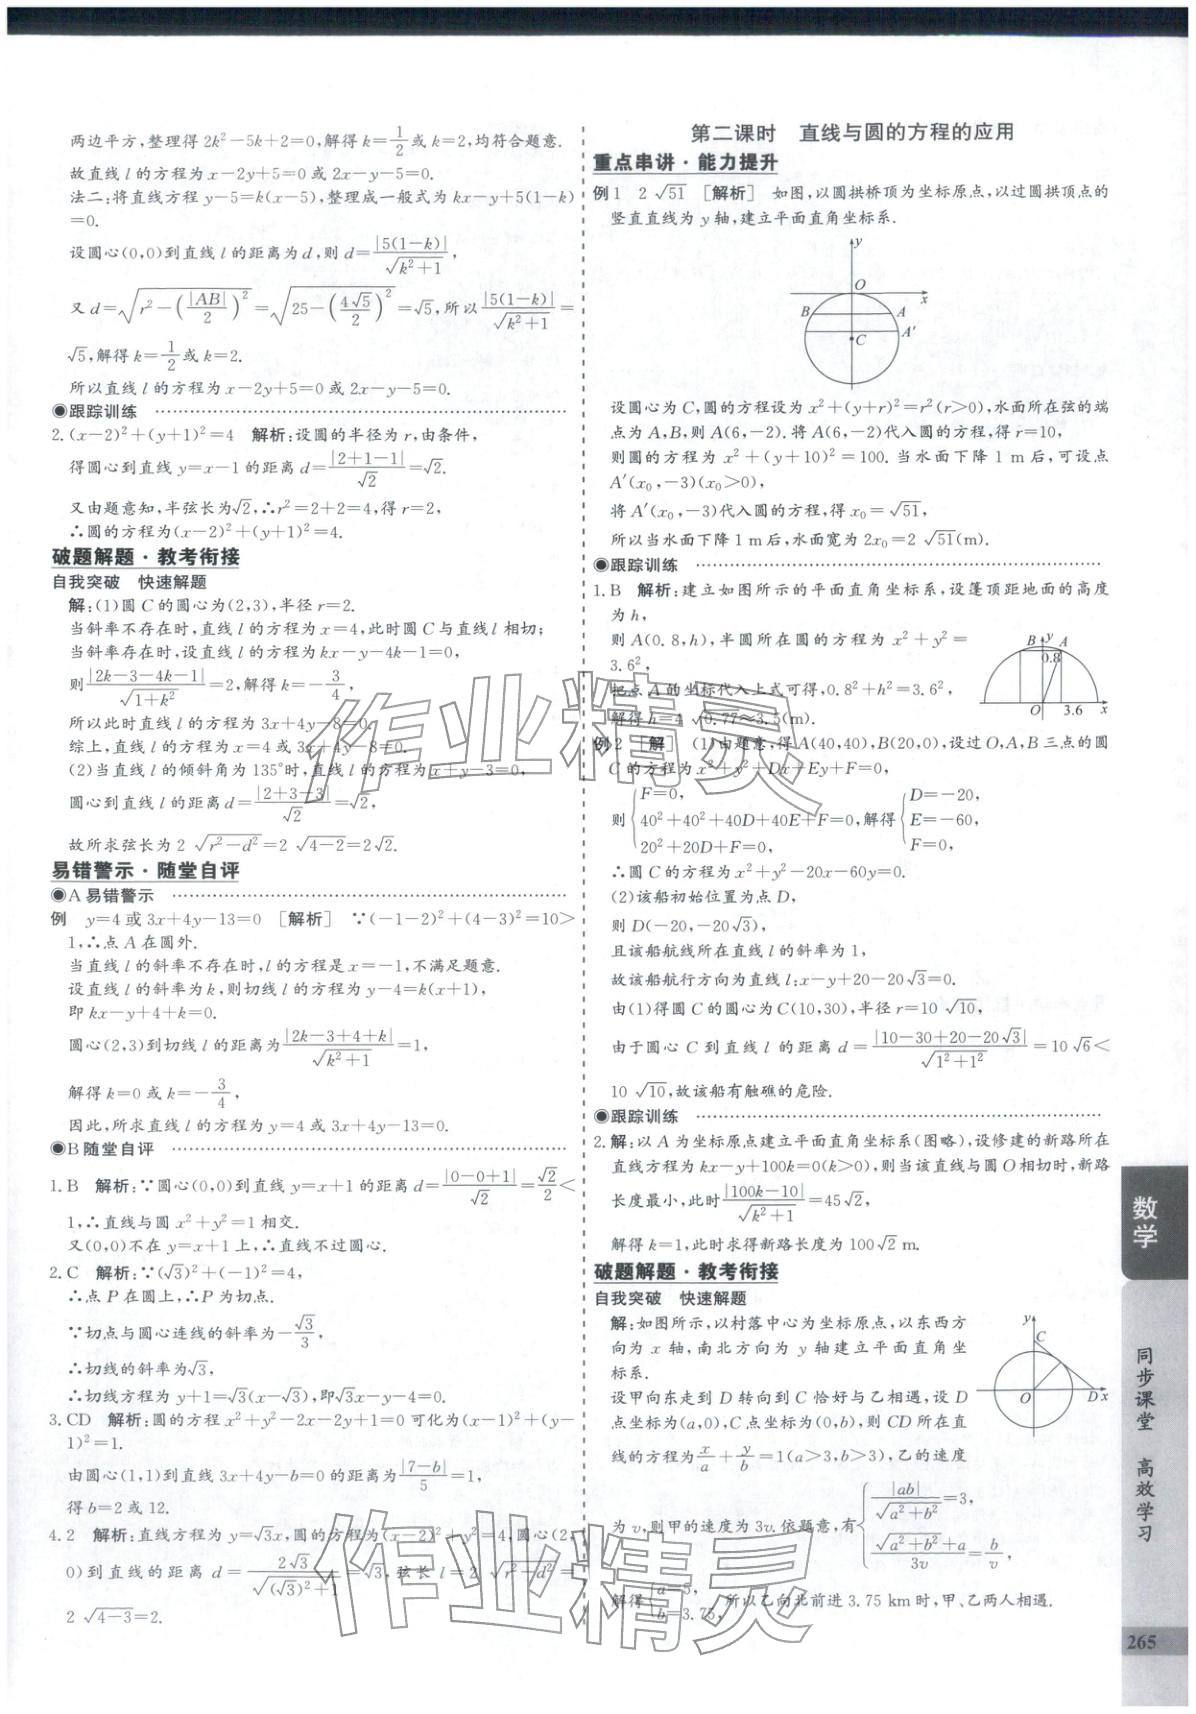 两边平方,整理得 2k²-5k+2=0,解得 k=1/2 或 k=2,均符合题意.
故直线 l 的方程为 x-2y+5=0 或 2x-y-5=0.
法二:将直线方程 y-5=k(x-5),整理成一般式为 kx-y+5(1-k)
=0.
设圆心(0,0)到直线 l 的距离为 d,则 d=|5(1-k)|/√(k²+1),
又 d=√(r²-(|AB|/2)²)=√(25-(4√5/2)²)=√5,所以 |5(1-k)|/√(k²+1)=
√5,解得 k=1/2 或 k=2.
所以直线 l 的方程为 x-2y+5=0 或 2x-y-5=0.
◉跟踪训练
2.(x-2)²+(y+1)²=4 解析:设圆的半径为 r,由条件,
得圆心到直线 y=x-1 的距离 d=|2+1-1|/√2=√2.
又由题意知,半弦长为√2,∴r²=2+2=4,得 r=2,
∴圆的方程为(x-2)²+(y+1)²=4.
破题解题·教考衔接
自我突破 快速解题
解:(1)圆 C 的圆心为(2,3),半径 r=2.
当斜率不存在时,直线 l 的方程为 x=4,此时圆 C 与直线 l 相切;
当斜率存在时,设直线 l 的方程为 kx-y-4k-1=0,
则|2k-3-4k-1|/√(1+k²)=2,解得 k=-3/4,
所以此时直线 l 的方程为 3x+4y-8=0.
综上,直线 l 的方程为 x=4 或 3x+4y-8=0.
(2)当直线 l 的倾斜角为 135°时,直线 l 的方程为 x+y-3=0,
圆心到直线 l 的距离 d=|2+3-3|/√2=√2,
故所求弦长为 2√(r²-d²)=2√(4-2)=2√2.
易错警示·随堂自评
◉A 易错警示
例 y=4 或 3x+4y-13=0 [解析] ∵(-1-2)²+(4-3)²=10>
1,∴点 A 在圆外.
当直线 l 的斜率不存在时,l 的方程是 x=-1,不满足题意.
设直线 l 的斜率为 k,则切线 l 的方程为 y-4=k(x+1),
即 kx-y+4+k=0.
圆心(2,3)到切线 l 的距离为|2k-3+4+k|/√(k²+1)=1,
解得 k=0 或 k=-3/4,
因此,所求直线 l 的方程为 y=4 或 3x+4y-13=0.
◉B 随堂自评
1.B 解析:∵圆心(0,0)到直线 y=x+1 的距离 d=|0-0+1|/√2=√2/2<
1,∴直线与圆 x²+y²=1 相交.
又(0,0)不在 y=x+1 上,∴直线不过圆心.
2.C 解析:∵(√3)²+(-1)²=4,
∴点 P 在圆上,∴P 为切点.
∵切点与圆心连线的斜率为-√3/3,
∴切线的斜率为√3,
∴切线方程为 y+1=√3(x-√3),即√3x-y-4=0.
3.CD 解析:圆的方程 x²+y²-2x-2y+1=0 可化为(x-1)²+(y-
1)²=1.
由圆心(1,1)到直线 3x+4y-b=0 的距离为|7-b|/5=1,
得 b=2 或 12.
4.2 解析:直线方程为 y=√3x,圆的方程为(x-2)²+y²=4,圆心(2,
0)到直线的距离 d=2√3/√((√3)²+1)=√3,弦长 l=2√(r²-d²)=
2√(4-3)=2.
第二课时 直线与圆的方程的应用
重点串讲·能力提升
例1 2√51 [解析] 如图,以圆拱桥顶为坐标原点,以过圆拱顶点的
竖直直线为 y 轴,建立平面直角坐标系.
y
O
x
B
A
A′
C
设圆心为 C,圆的方程设为 x²+(y+r)²=r²(r>0),水面所在弦的端
点为 A,B,则 A(6,-2).将 A(6,-2)代入圆的方程,得 r=10,
则圆的方程为 x²+(y+10)²=100.当水面下降 1 m 后,可设点
A′(x₀,-3)(x₀>0),
将 A′(x₀,-3)代入圆的方程,得 x₀=√51,
所以当水面下降 1 m 后,水面宽为 2x₀=2√51(m).
◉跟踪训练
1.B 解析:建立如图所示的平面直角坐标系,设篷顶距地面的高度
为 h,
则 A(0.8,h),半圆所在圆的方程为 x²+y²=
3.6²,
把点 A 的坐标代入上式可得,0.8²+h²=3.6²,
解得 h=4√0.77≈3.5(m).
B y A
0.8
O 3.6 x
例2 [解] (1)由题意,得 A(40,40),B(20,0),设过 O,A,B 三点的圆
C 的方程为 x²+y²+Dx+Ey+F=0,
则{F=0, 40²+40²+40D+40E+F=0, 20²+20D+F=0, 解得{D=-20, E=-60, F=0,
∴圆 C 的方程为 x²+y²-20x-60y=0.
(2)该船初始位置为点 D,
则 D(-20,-20√3),
且该船航线所在直线 l 的斜率为 1,
故该船航行方向为直线 l:x-y+20-20√3=0.
由(1)得圆 C 的圆心为 C(10,30),半径 r=10√10,
由于圆心 C 到直线 l 的距离 d=|10-30+20-20√3|/√(1²+1²)=10√6<
10√10,故该船有触礁的危险.
◉跟踪训练
2.解:以 A 为坐标原点建立平面直角坐标系(图略),设修建的新路所在
直线方程为 kx-y+100k=0(k>0),则当该直线与圆 O 相切时,新路
长度最小,此时|100k-10|/√(k²+1)=45√2,
解得 k=1,此时求得新路长度为 100√2 m.
破题解题·教考衔接
自我突破 快速解题
解:如图所示,以村落中心为坐标原点,以东西方
向为 x 轴,南北方向为 y 轴建立平面直角坐
标系.
设甲向东走到 D 转向到 C 恰好与乙相遇,设 D
点坐标为(a,0),C 点坐标为(0,b),则 CD 所在直
线的方程为x/a+y/b=1(a>3,b>3),乙的速度
为 v,则甲的速度为 3v.依题意,有{|ab|/√(a²+b²)=3, (√(a²+b²)+a)/3v=b/v,
解得{a=5, b=3.75, 所以乙向北前进 3.75 km时,甲、乙两人相遇.
y
C
O
D x
数学
同步课堂 高效学习
265
作业精灵
作业精灵